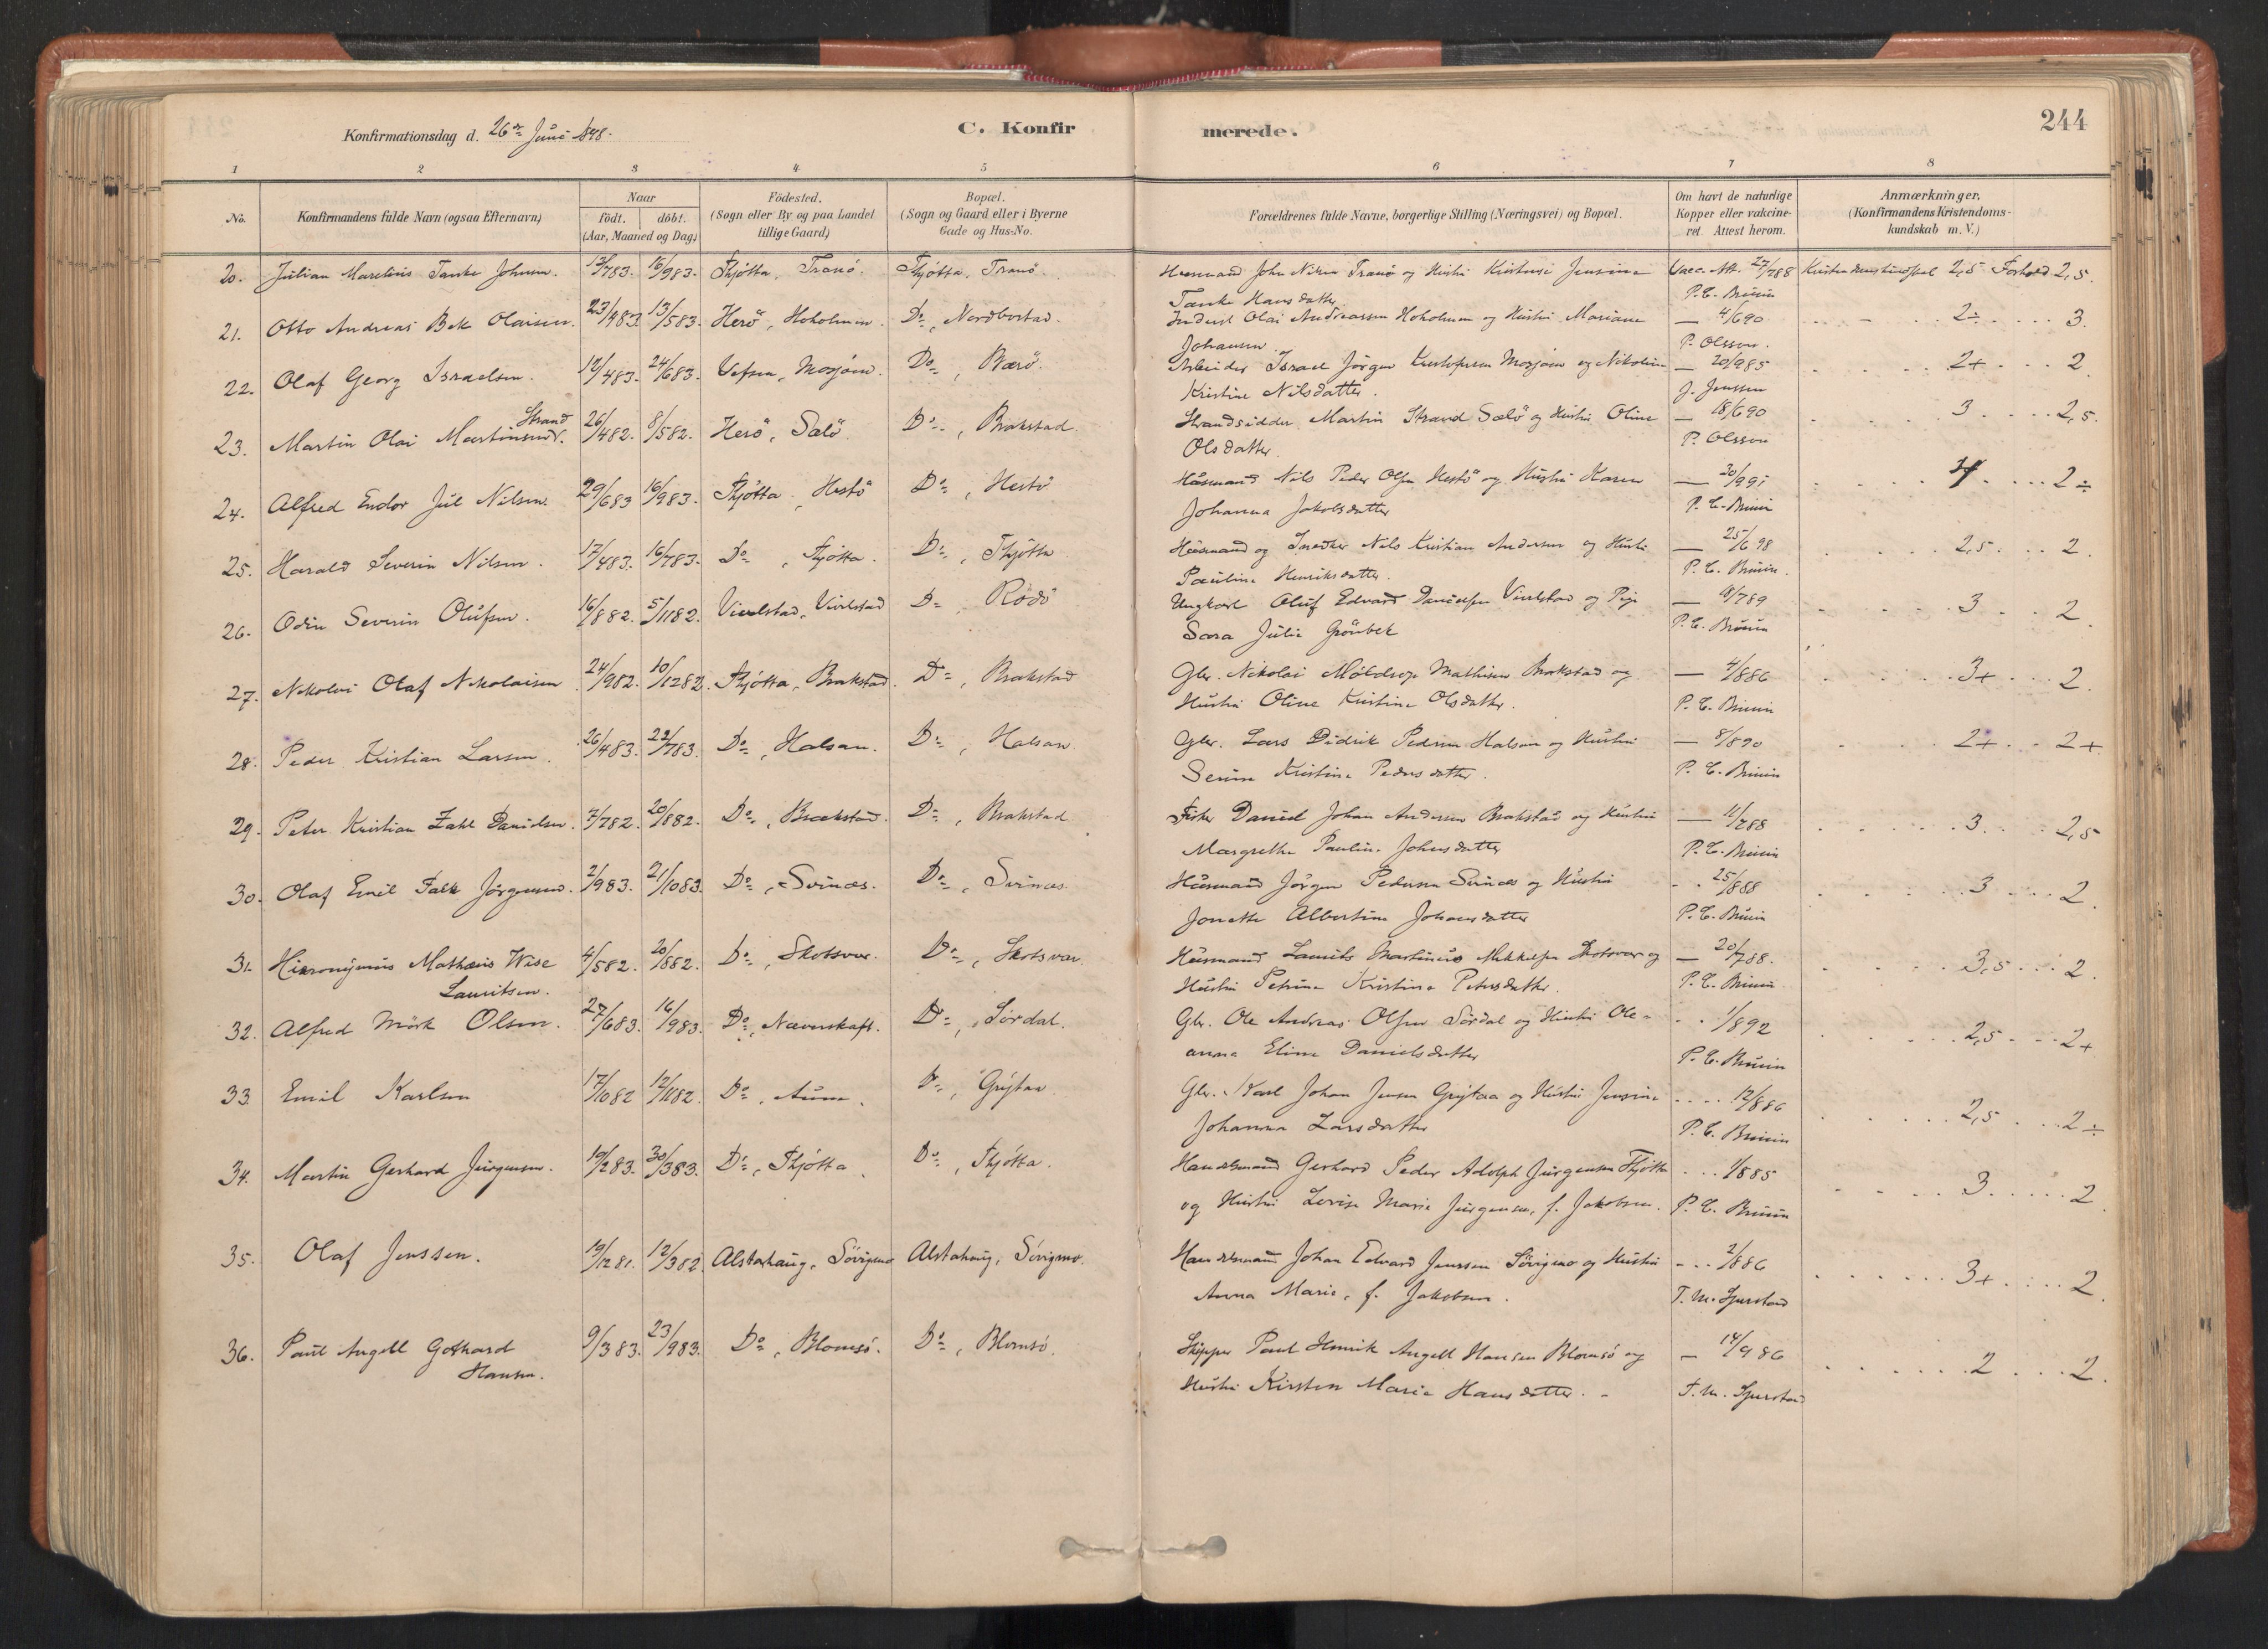 Konfirmationsdag d. 26de Juni 1898.
C. Konfirmerede.
244
1 2 3 4 5 6 7 8
No. Konfirmandens fulde Navn (ogsaa Efternavn) Naar födt. döbt. (Aar, Maaned og Dag) Födested. (Sogn eller By og paa Landet tillige Gaard) Bopæl. (Sogn og Gaard eller i Byerne Gade og Hus-No. Forældrenes fulde Navne, borgerlige Stilling (Næringsvei) og Bopæl. Om havt de naturlige Kopper eller vakcineret. Attest herom. Anmærkninger. (Konfirmandens Kristendomskundskab m. V.)
20. Julian Marelius Tanke Johnsen. 12/7 83. 16/9 83. Thjøtta, Tranö. Thjøtta, Tranö. Husmand John Nilsen Tranö og Hustru Kristense Jensine Vacc. Att. 27/7 88 Kristendomskundskab 2,5 Forhold 2,5.
Tanke Hansdatter. P. C. Bruun
21. Otto Andreas Bek Olaisen. 23/9 83. 13/5 83. Herö, Hoholmen. Do, Nordbostad. Inderst Olai Andreassen Hoholmen og Hustru Mariane — 4/6 90 2÷ 3.
Johansen. P. Olsson.
22. Olaf Georg Israelsen. 12/4 83. 24/6 83. Vefsen, Mosjøen. Do, Bærö. Arbeider Israel Jörgen Kristofersen Mosjøen og Nikoline — 20/9 85 2+ 2.
Kristine Nilsdatter. J. Jenssen
23. Martin Olai Martinsen Strand. 26/4 82. 8/5 82. Herö, Salö. Do, Brakstad. Strandsidder Martin Strand Salö og Hustru Oline — 18/6 90 3 2,5.
Olsdatter. P. Olsson
24. Alfred Endor Jul Nilsen. 29/6 83 16/9 83. Thjøtta, Hestö Do, Hestö Husmand Nils Peder Olsen Hestö og Hustru Karen — 4 2÷
Johanna Jakobsdatter P. C. Bruun
25. Harald Severin Nilsen. 17/4 83. 16/7 83. Do, Thjøtta. Do, Thjøtta Husmand og Snedker Nils Kristian Andersen og Hustru — 25/6 98 2,5 2.
Pauline Henriksdatter. P. C. Bruun.
26. Odin Severin Olufsen. 16/8 82. 5/11 82. Vivelstad, Vivelstad Do, Rödö Ungkarl Oluf Edvard Danielsen Vivelstad og Pige — 8/7 89 3 2.
Sara Julie Grönbek P. C. Bruun
27. Nikolai Olaf Nikolaisen 24/9 82. 10/12 82. Thjøtta, Brakstad. Do, Brakstad Gbr. Nikolai Möldrup Mathisen Brakstad og — 4/8 86 3+ 2.
Hustru Oline Kristine Olsdatter. P. C. Bruun
28. Peder Kristian Larsen. 26/4 83. 22/7 83. Do, Halsan. Do, Halsan Gbr. Lars Didrik Pedersen Halsan og Hustru — 8/8 90 2+ 2+
Serine Kristine Pedersdatter. P. C. Bruun
29. Peter Kristian Zahl Danielsen. 7/7 82. 20/8 82. Do, Brækstad. Do, Brakstad Fisker Daniel Johan Andersen Brakstad og Hustru — 11/7 88 3. 2,5
Margrethe Pauline Johnsdatter P. C. Bruun
30. Olaf Emil Falk Jörgensen. 2/9 83. 21/10 83. Do, Svinæs. Do, Svinæs Husmand Jörgen Pedersen Svinæs og Hustru 25/8 88 3 2.
Jonette Albertine Johansdatter P. C. Bruun
31. Hieronymus Mathæus Wise 4/5 82. 20/8 82. Do, Skotsvær. Do, Skotsvær Husmand Laurits Martinus Mikkelsen Skotsvær og — 20/7 88. 3,5 2.
Lauritsen. Hustru Petrine Kristine Petersdatter. P. C. Bruun
32. Alfred Mörk Olsen. 27/6 83. 16/9 83. Do, Næverskaft. Do, Sördal. Gbr. Ole Andreas Olsen Sördal og Hustru Ole- 1/8 92 2,5 2+
anna Eline Danielsdatter P. C. Bruun
33. Emil Karlsen 17/10 82 12/11 82. Do, Aunn. Do, Grytaa Gbr. Karl Johan Jensen Grytaa og Hustru Jensine 12/8 86 2,5 2÷
Johanna Larsdatter P. C. Bruun
34. Martin Gerhard Jürgensen. 10/2 83. 30/3 83. Do, Thjøtta. Do, Thjøtta. Handelsmand Gerhard Peder Adolph Jürgensen Thjøtta 1/8 85 3 2.
og Hustru Lovise Marie Jürgensen, f. Jakobsen. P. C. Bruun
35. Olaf Jenssen. 19/12 81. 12/3 82. Alstahaug, Sövigmo Alstahaug, Sövigmo. Handelsmand Johan Edvard Jenssen Sövigmo og Hustru 2/8 86 3+ 2.
Anna Marie, f. Jakobsen. T. M. Sjurstad
36. Paul Angell Gothard 9/3 83. 23/9 83. Do, Blomsö. Do, Blomsö. Skipper Paul Henrik Angell Hansen Blomsö og — 14/9 86 2 2.
Hansen. Hustru Kirsten Marie Hansdatter. T. M. Sjurstad